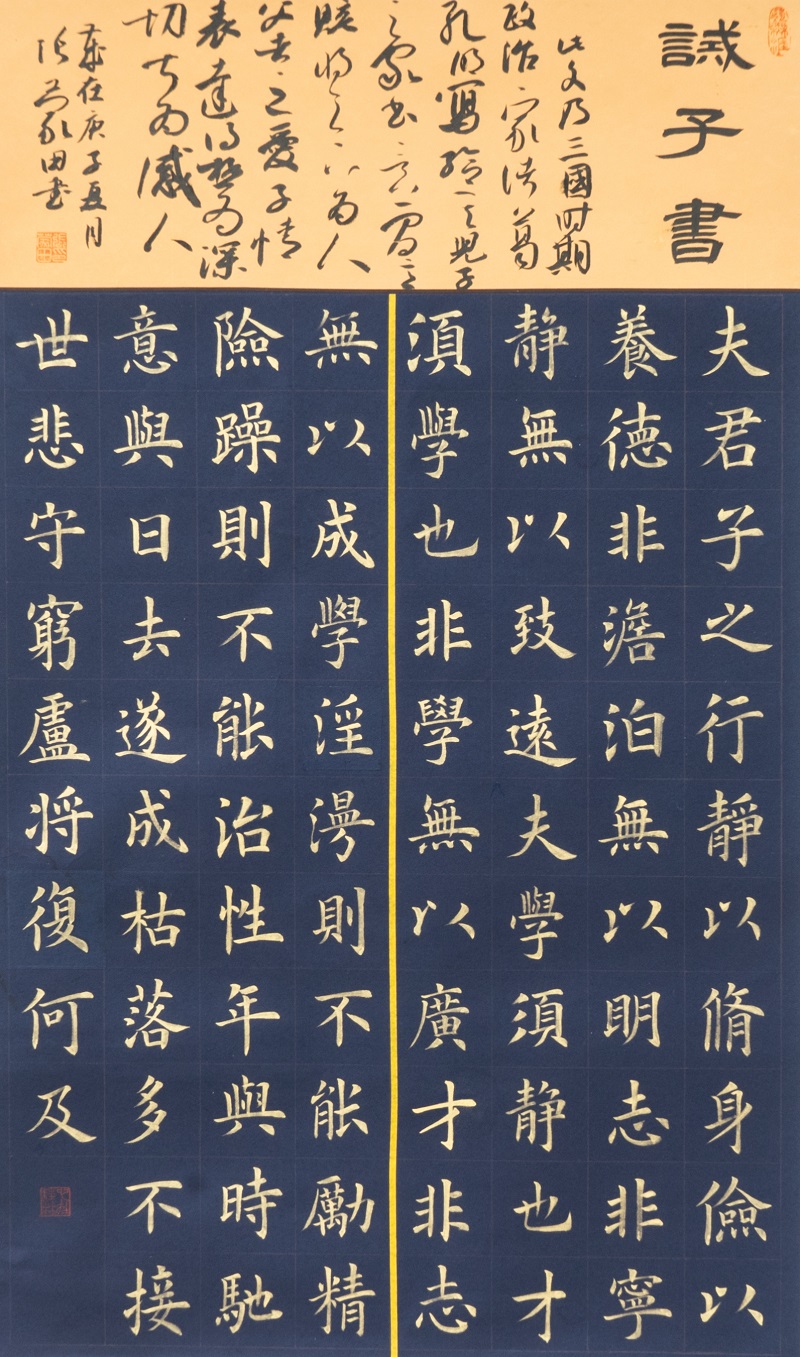 誡子書
此文乃三國时期
政治家诸葛
孔明寫给其兒子
之家书言简意
赅为人
父者之爱子情
表達得极为深
切为感人
歲在庚子夏月
田书
夫君子之行靜以脩身儉以
養德非澹泊無以明志非寧
静無以致遠夫學須静也才
須學也非學無以廣才非志
無以成學淫漫則不能勵精
險躁則不能治性年與時馳
意與日去遂成枯落多不接
世悲守窮盧将復何及